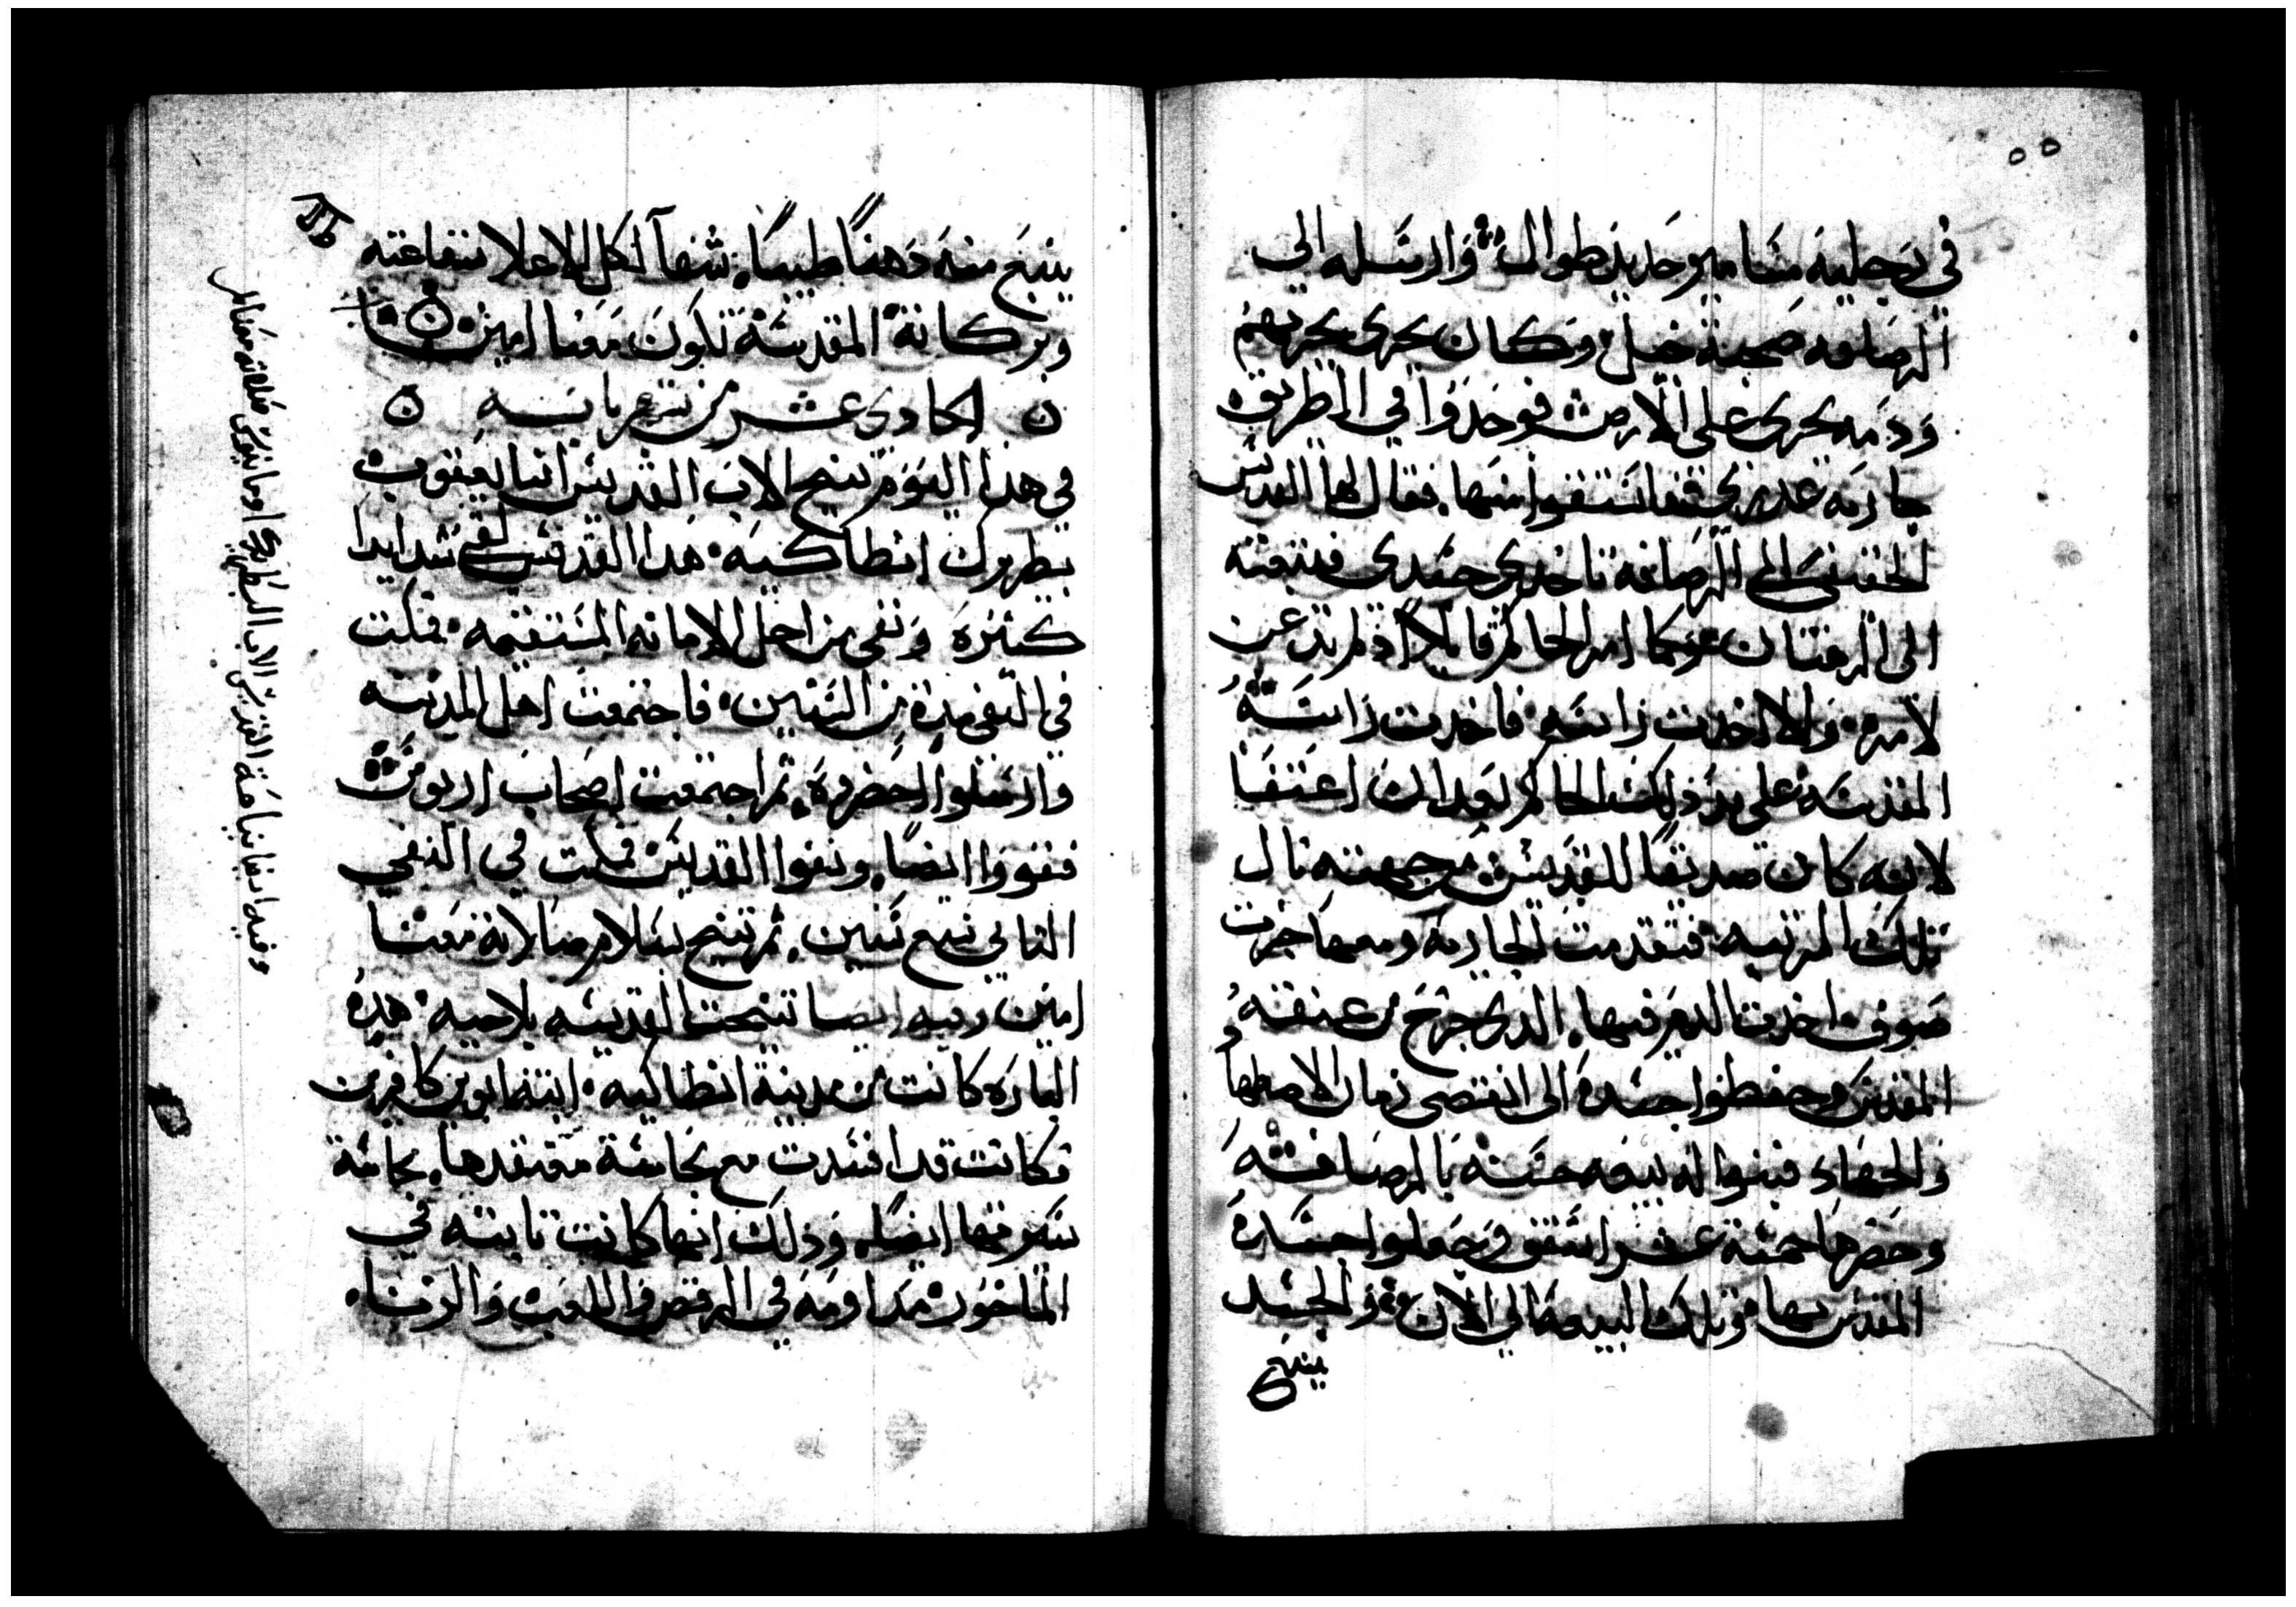 في رجليه مسامير حديد طوال وارسله الي
الرصافه صحبة خيل وكان يجرى بجريهم
ودمه يجرى على الارض فوجدوا في الطريق
جاريه عدرى فاستقوا منها فقال لها القديس
الحقيني الى الرصافه تاخدى جسدى فتبعته
الى الرصافه امر الحاكم قايلا اذ لم يذعن
لامره والا اخدت راسه فاخدت راسه
المقدسه على يد ذلك الحاكم بعد ان اعتفا
لانه كان صديقا للقديس من جهته نال
تلك المرتبه فتقدمت الجاريه ومعها جزت
صوف اخدت الدم فيها الدى خرج من عنقه
المقدس وحفظوا جسده الى انقضى زمان الاضطهاد
والجهاد فبنوا له بيعه حسنه بالرصافه
وحضرها خمسة عشر اسقف وجعلوا جسده
المقدس بها وتلك البيعه الي الان والجسد
ينبع
٥٥
ينبع منه دهنا طيبا شفآ لكل الاعلا شفاعته
وبركاته المقدسه تكون معنا امين
الحادى عشر من شهر بابه
في هدا اليوم تنيح الاب القديس انبا يعقوب
بطريرك انطاكيه هدا القديس لقى شدايدا
كثيره ونفى من اجل الامانه المستقيمه فمكت
في النفى مدة من السنين فاجتمعت اهل المدينه
وارسلوا احضروه ثم اجتمعت اصحاب اريوس
فنفووا ايضا ونفوا القديس فمكت في النفي
التاني سبع سنين ثم تنيح بسلام صلاته معنا
امين وفيه ايضا تنيحت القديسه بلاجيه هده
الباره كانت من مدينة انطاكيه ابنة ابوين كافرين
وكانت قد افسدت مع نجاسة معتقدها نجاسة
سيرتها ايضا وذلك انها كانت تابته في
الماخور مداومه في الرقص واللعب والزنا
وفيه ايضا نياحة القديس الاب البطريرك